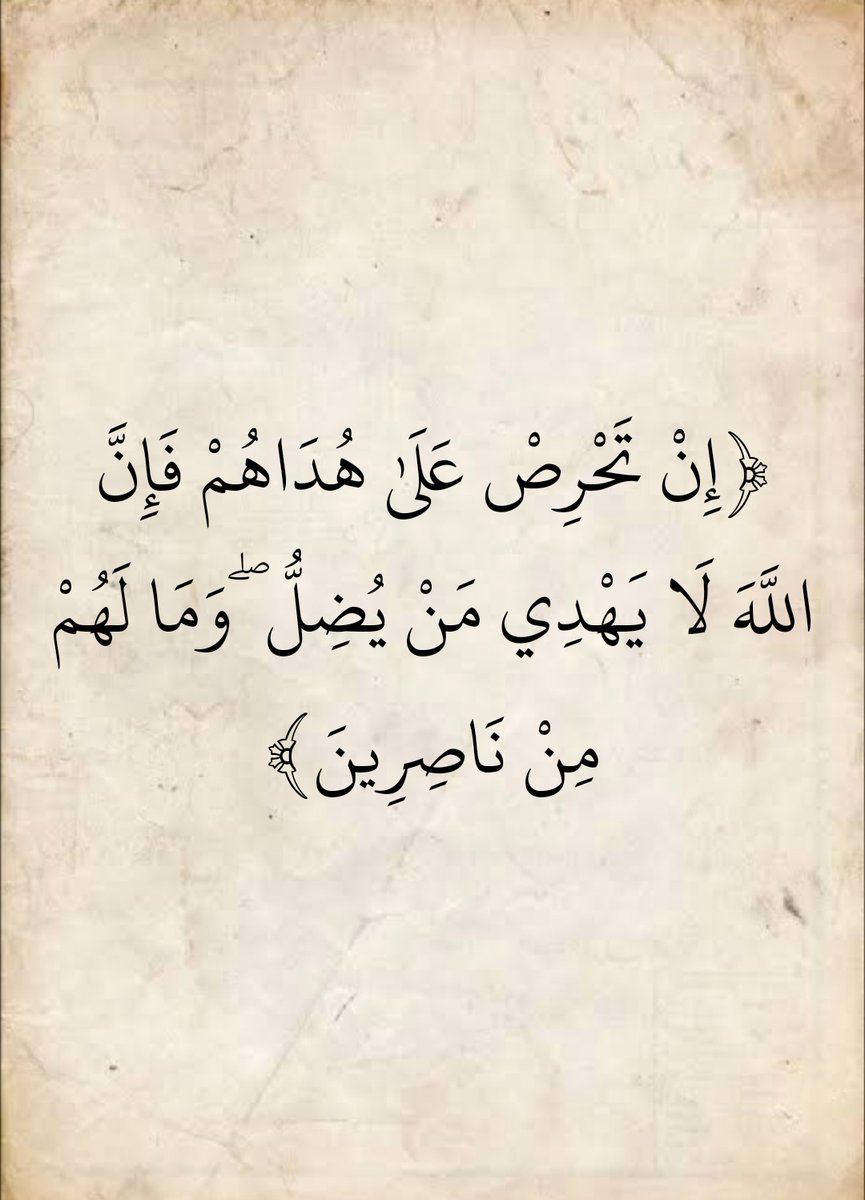 ﴿إِنْ تَحْرِصْ عَلَىٰ هُدَاهُمْ فَإِنَّ
اللَّهَ لَا يَهْدِي مَنْ يُضِلُّ ۖ وَمَا لَهُمْ
مِنْ نَاصِرِينَ﴾